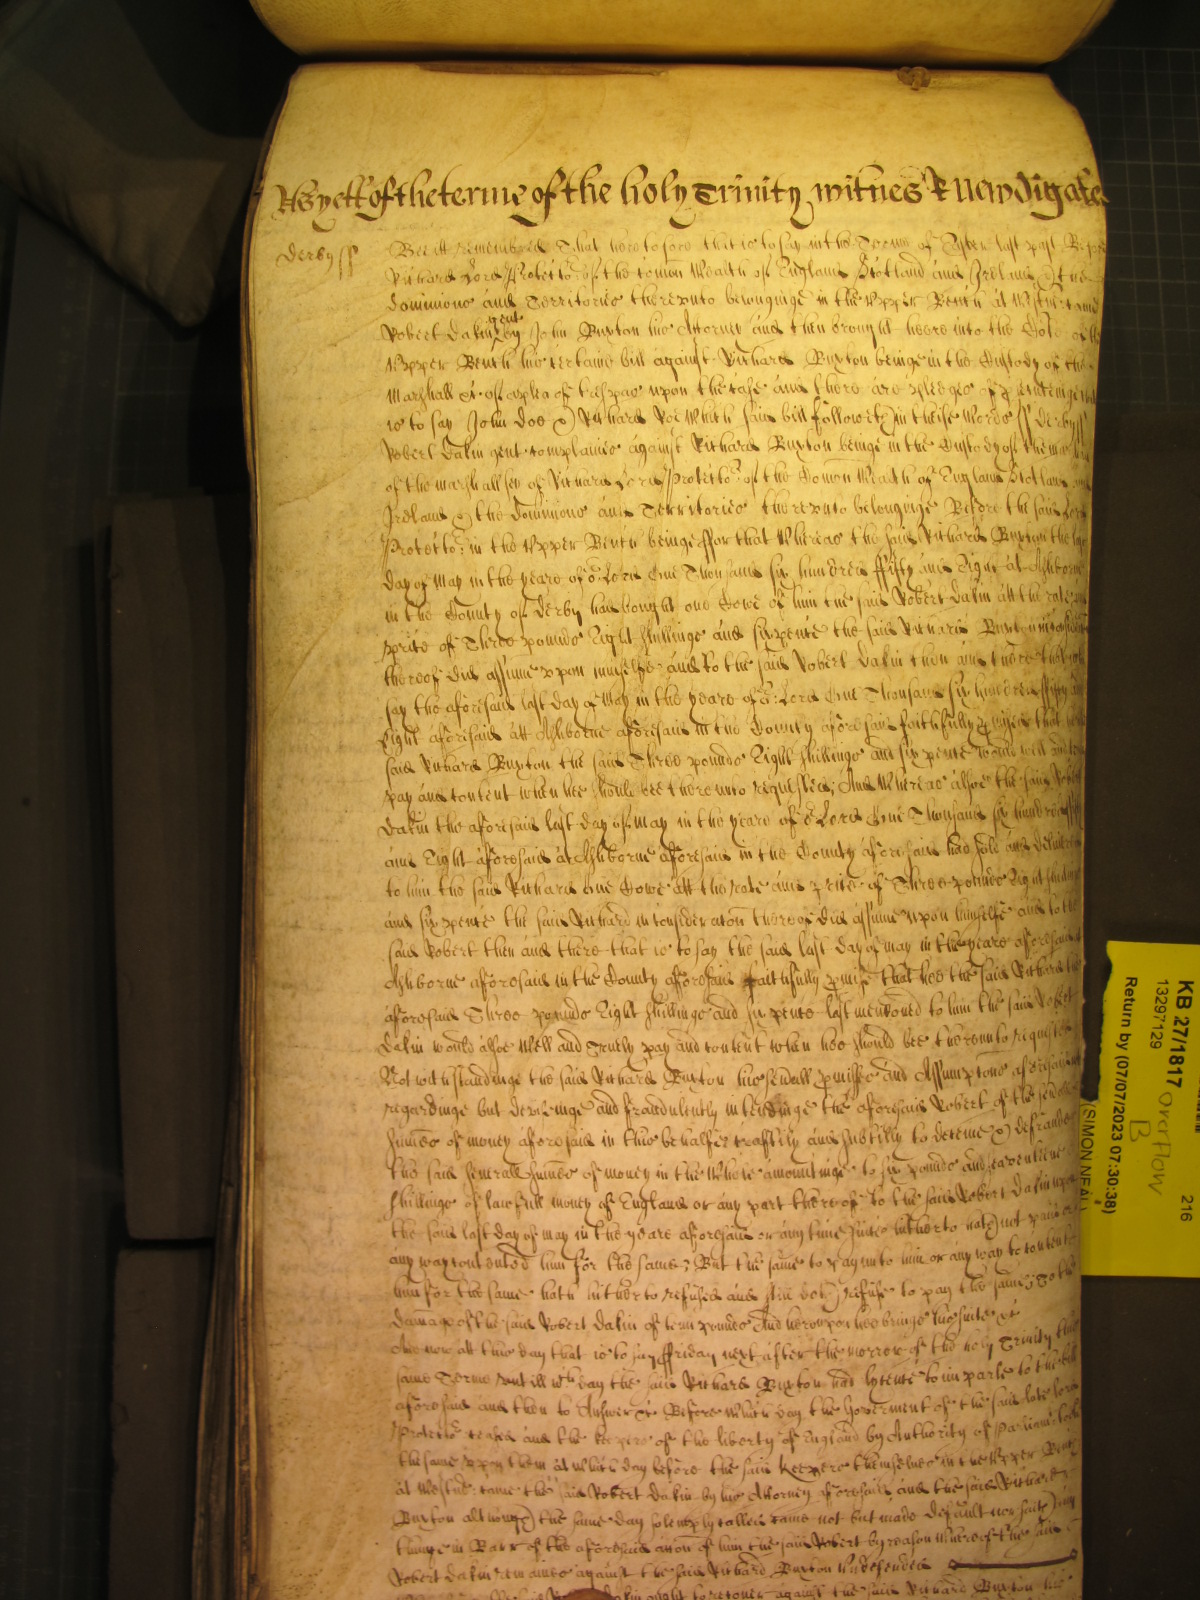 As yett of the terme of the holy Trinity witnes R Newdigate
Derby ss Bee itt remembred That heretofore that is to say in the Terme of Easter last past Before
Richard Lord Protector of the Comon Wealth of England Scotland and Ireland & the
dominions and Territories thereunto belonginge in the Upper Bench at Westm came
Robert Dakin gent by John Buxton his Attorney and then brought heere into the Cort of the
Upper Bench his certaine bill against Richard Buxton beinge in the Custody of the
Marshall &c of a plea of trespas upon the case and there are pledges of
is to say John Doe & Richard Roe Which said bill followeth in theise Words ss Derby ss
Robert Dakin gent complaines against Richard Buxton beinge in the Custody of the
of the marshallsey of Richard Lord Protector of the Comon Wealth of England Scotland and
Ireland & the dominions and Territories thereunto belonginge Before the said Lord
Protector in the Upper Bench beinge ffor that Whereas the said Richard Buxton the last
day of May in the yeare of or Lord One Thousand six hundred ffifty and Eight at Ashborne
in the County of Derby had bought one Cowe of him the said Robert Dakin att the rate and
price of Three pounds Eight shillings and six pence the said Richard Buxton in
thereof did assume upon himselfe and to the said Robert Dakin then and there that is to
say the aforesaid last day of May in the yeare of or Lord One Thousand six hundred ffifty and
Eight aforesaid att Ashborne aforesaid in the County aforesaid faithfully promise that
said Richard Buxton the said Three pounds Eight shillings and six pence would well and
pay and content when hee should bee thereunto requested; And Whereas alsoe the said Robert
Dakin the aforesaid last day of May in the yeare of or Lord One Thousand six hundred ffifty
and Eight aforesaid at Ashborne aforesaid in the County aforesaid had sold and delivered
to him the said Richard one Cowe att the rate and price of Three pounds Eight shillings
and six pence the said Richard in consideracon thereof did assume upon himselfe and to the
said Robert then and there that is to say the said last day of may in the yeare aforesaid at
Ashborne aforesaid in the County aforesaid faithfully promise that hee the said Richard the
aforesaid Three pounds Eight shillings and six pence last menconed to him the said Robert
Dakin would alsoe Well and Truely pay and content when hee should bee thereunto requested
Notwithstandinge the said Richard Buxton his severall promises and Assumptons aforesaid not
regardinge but deviseinge and fraudulently intendinge the aforesaid Robert of the severall
sumes of money aforesaid in this behalfe craftily and subtilly to deceive & defraude
the said severall sumes of money in the Whole amountinge to six pounds and seaventeene
shillings of lawfull money of England or any part thereof to the said Robert Dakin upon
the said last day of may in the yeare aforesaid or any time since hitherto hath not paid or
any way contented him for the same; But the same to pay unto him or any way to content
him for the same hath hitherto refused and still doth refuse to pay the same; To the
damage of the said Robert Dakin of tenn pounds And hereupon hee brings his suite &c
And now att this day that is to say ffriday next after the morrow of the holy Trinity this
same Terme untill wch day the said Richard Buxton had lycence to imparle to the bill
aforesaid and then to Answer &c Before Which day the Goverment of the said late Lord
Protector ceased and the Keepers of the liberty of England by Authority of Parliamt tooke
the same upon them at Which day before the said Keepers themselves in the Upper Bench
at Westmr came the said Robert Dakin by his Attorney aforesaid, and the said Richard
Buxton although the same day solemply called came not but made default nor saith any
thinge in Barr of the aforesaid accon of him the said Robert by reason Whereof the said
Robert Dakin remaines against the said Richard Buxton Undefended
Dakin ought to recover against the said Richard Buxton his
KB 27/1817 Overflow
13297129 B 216
Return by (07/07/2023 07:30:38)
(SIMON NEAL)